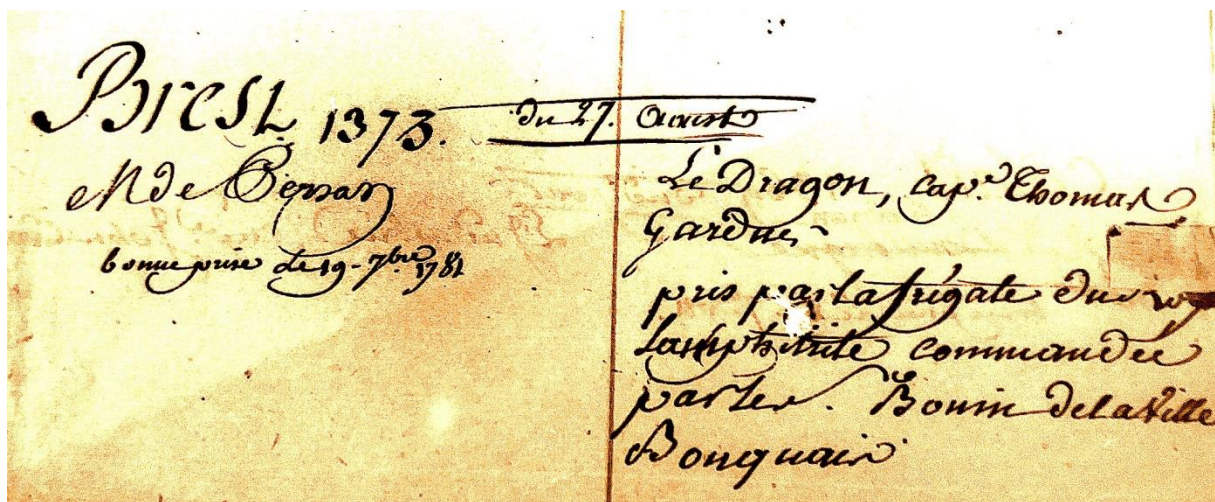 Brest 1373. du 27. Aoust
M de
bonne prise Le 19 - 7.bre 1781
Le Dragon, cap.e Thomas
Gardner
pris par la frégate du roy
Lamphitrite commandée
par le s. Bouin de la Ville
Bouquais